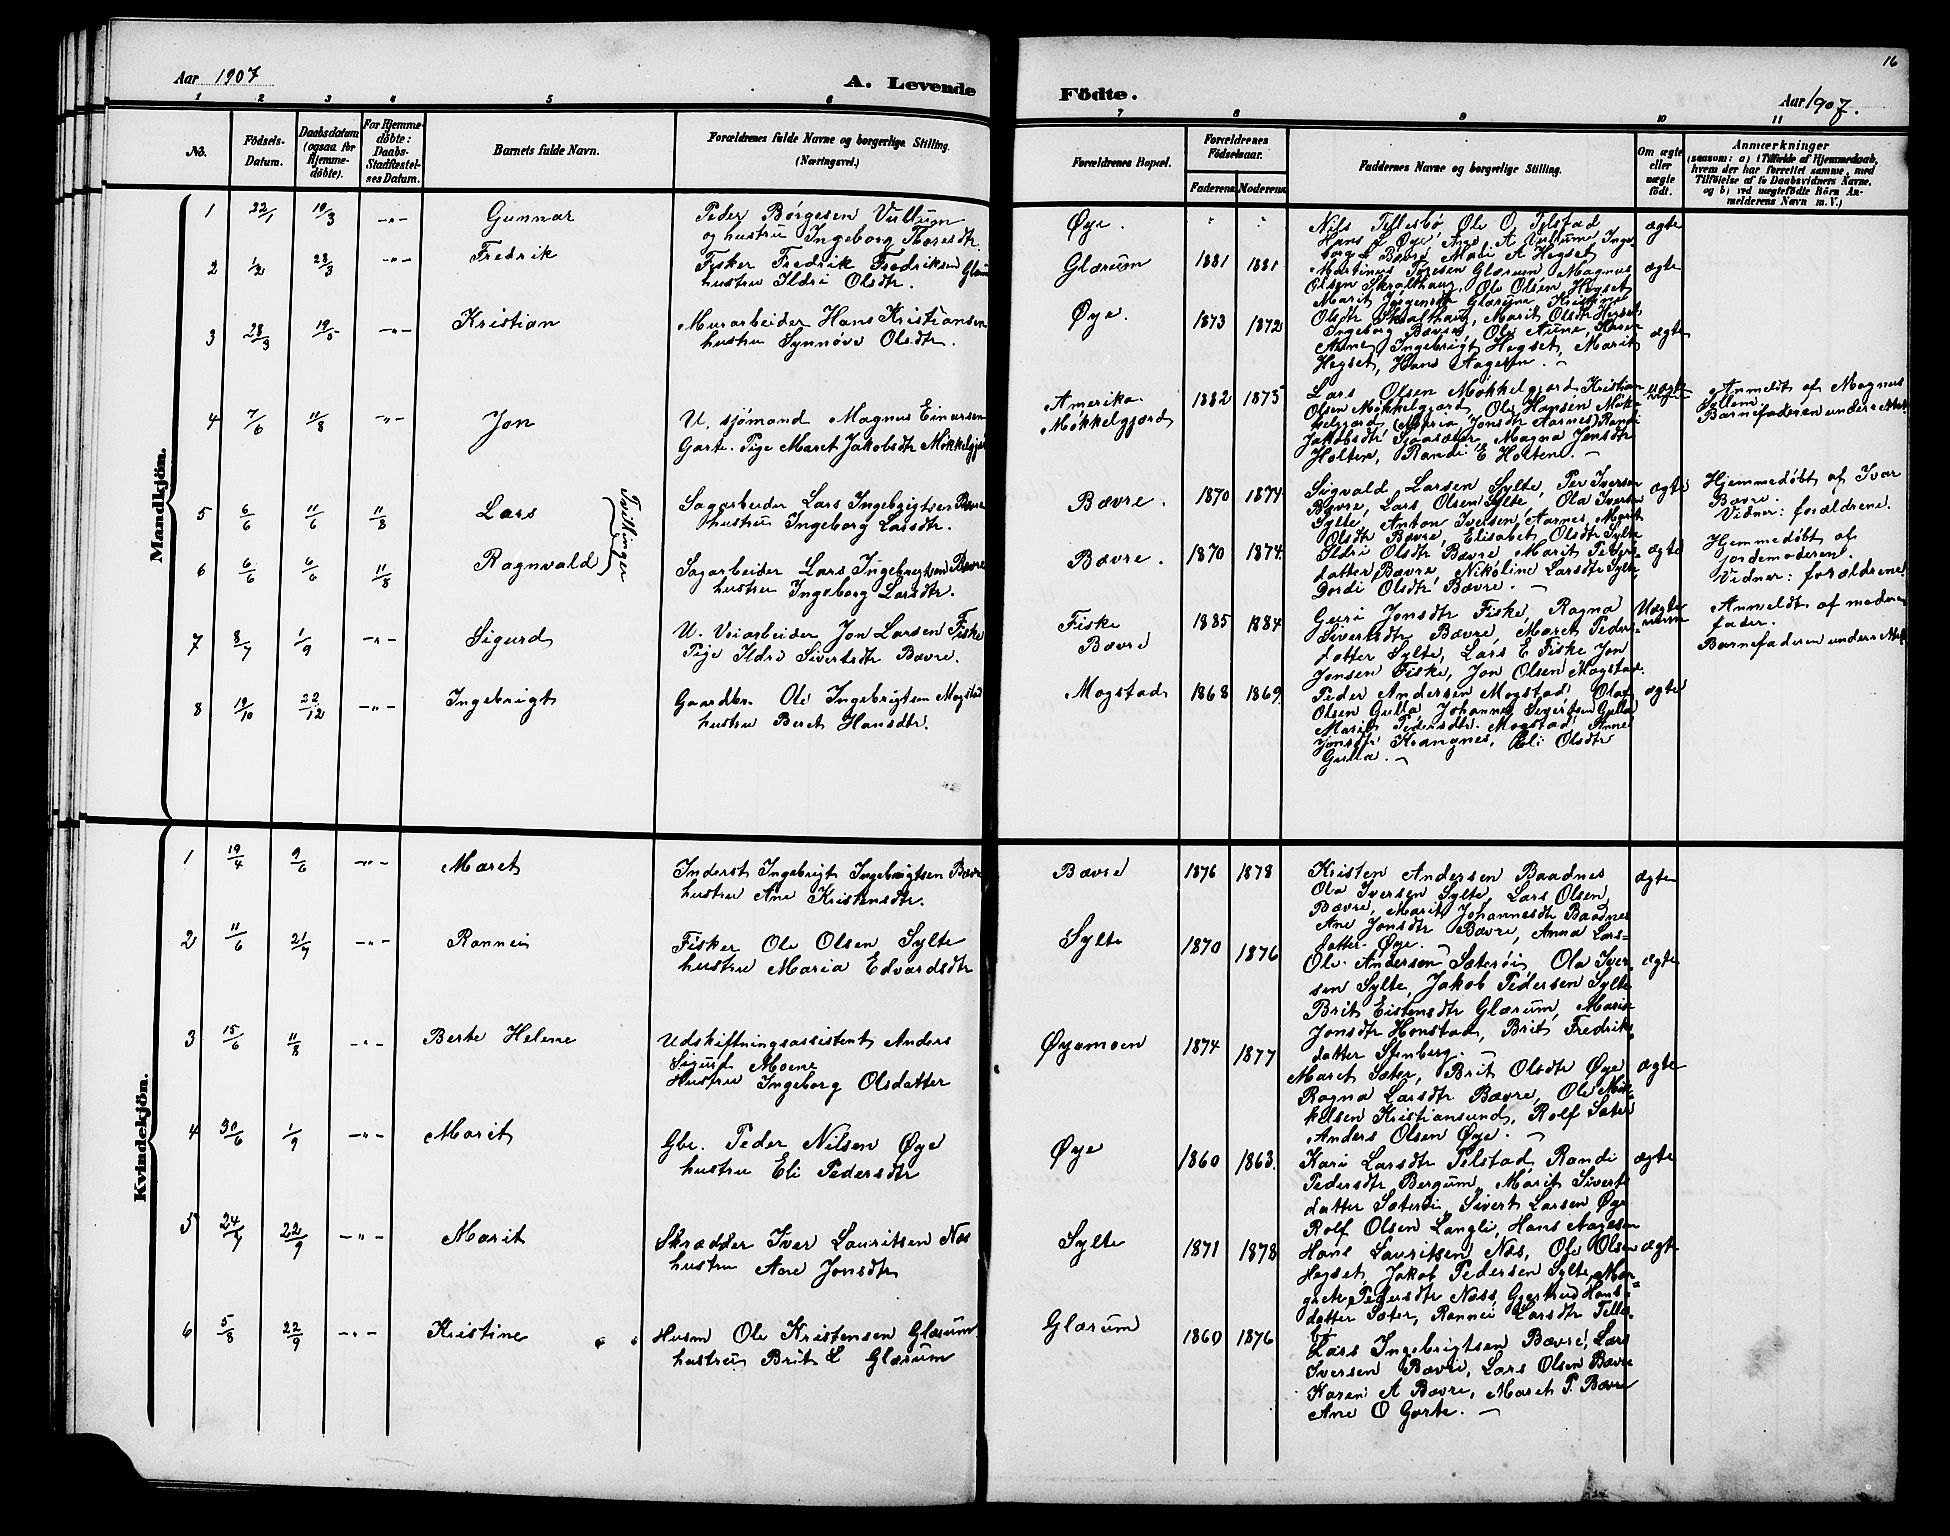 16
Aar 1907
A. Levende
Födte.
Aar 1907.
1 2 3 4 5 6 7 8 9 10 11
No.
Födsels-
Datum.
Daabsdatum
(ogsaa for
Hjemme-
döbte).
For Hjemme-
döbte:
Daabs-
Stadfæstel-
ses Datum.
Barnets fulde Navn.
Forældrenes fulde Navne og borgerlige Stilling.
(Næringsvei.)
Forældrenes Bopæl.
Forældrenes
Födselsaar.
Faderens Moderens
Faddernes Navne og borgerlige Stilling.
Om ægte
eller
uægte
födt.
Anmærkninger
(saasom: a) i Tilfælde af Hjemmedaab,
hvem der har forrettet samme, med
Tilföielse af to Daabsvidners Navne,
og b) ved uægtefödte Börn An-
melderens Navn m. V.)
Mandkjön.
1 22/1 19/3 -"- Gunnar
Peder Börgesen Vullum
og hustru Ingeborg Thoresdtr.
Øye. " "
Nils Tellesbø, Ole O Telstad
Hans L Øye, Ane A Vullum, Inge
borg Bævre, Mali A Hegset
ægte
2 1/2 28/3 -"- Fredrik
Fisker Fredrik Fredriksen Glærum
hustru Ildri Olsdtr.
Glærum 1881 1881
Martinus Toresen Glærum Magnus
Olsen Skralthaug, Ole Olsen Hegset
Marit Jørgensdtr Glærum, Kristine
Olsdtr Skralthaug, Marit Olsdtr Hegset
ægte
3 28/3 19/5 -"- Kristian
Murarbeider Hans Kristiansen
hustru Synnøve Olsdtr.
Øye. 1873 1872
Ingeborg Bævre, Ole Aune, Karen
Aune, Ingebrigt Hegset, Marit
Hegset, Hans Aagesen.
ægte
4 7/6 11/8 -"- Jon
U. sjømand Magnus Einarsen
Garte. Pige Maret Jakobsdtr Møkkelgjerd
Amerika.
Møkkelgjerd
1882 1875
Lars Olsen Møkkelgjerd, Kristian
Olsen Møkkelgjerd, Ole Hansen Møk-
kelgjerd, (Maria Jonsdtr Aarnes) Randi
Jakobsdtr Sjaasæter, Magna Jonsdtr
Holten, Randi E Holten.
uægte
Anmeldt af Magnus
Tellem.
Barnefaderen under 
5 6/6 11/6 11/8 Lars
Tvillinger
Sagarbeider Lars Ingebrigtsen Bævre
hustru Ingeborg Larsdtr.
Bævre. 1870 1874
Sigvald Larsen Sylte, Per Iversen
Bævre, Lars Olsen Sylte, Ola Iversen
Sylte, Anton Iversen Aarnes, Marit
Olsdtr Bævre, Elisabet Olsdtr Sylte
ægte
Hjemmedøbt af Ivar
Bævre.
Vidner: forældrene.
6 6/6 6/6 11/8 Ragnvald
Sagarbeider Lars Ingebrigtsen Bævre
hustru Ingeborg Larsdtr.
Bævre. 1870 1874
Ildri Olsdtr Bævre, Marit Peders-
datter Bævre, Nikoline Larsdtr Sylte,
Dordi Olsdtr Bævre.
ægte
Hjemmedøbt af
jordemoderen.
Vidner: forældrene
7 8/7 1/9 -"- Sigurd
U. Veiarbeider Jon Larsen Fiske
Pige Ildri Sivertsdtr Bævre.
Fiske
Bævre
1885 1884
Guri Jonsdtr Fiske, Ragna
Sivertsdtr Bævre, Maret Peders-
datter Sylte, Lars E Fiske Jon
Jonsen Fiske, Jon Olsen Mogstad
Uægte
Anmeldt af moderens
fader.
Barnefaderen under 
8 19/10 22/12 -"- Ingebrigt
Gaardbr. Ole Ingebrigtsen Mogstad
hustru Beret Hansdtr.
Mogstad 1868 1869
Peder Andersen Mogstad, Olaf
Olsen Gulla, Johannes Sivertsen Gulla
Marit Pedersdtr. Mogstad, Anne
Jonsdtr Kvangnes, Eli Olsdtr
Gulla.
ægte
Kvindekjön.
1 19/4 9/6 -"- Maret
Inderst Ingebrigt Ingebrigtsen Bævre
hustru Ane Kristensdtr.
Bævre 1876 1878
Kristen Andersen Baadnes
Ola Iversen Sylte, Lars Olsen
Bævre, Marit Johannesdtr Baadnes
Ane Jonsdtr Bævre, Anna Lars-
datter Øye.
ægte
2 11/6 21/7 -"- Rannei
Fisker Ole Olsen Sylte
hustru Maria Edvardsdtr
Sylte 1870 1876
Ole Andersen Sæterøi, Ola Iver-
sen Sylte, Jakob Pedersen Sylte
Brit Eistensdtr Glærum, Marie
Jonsdtr Honstad, Brit Fredriks
datter Stenberg.
ægte
3 15/6 11/8 -"- Berte Helene
Udskiftningsassistent Anders
Sigurd Moene
Hustru Ingeborg Olsdatter
Øyamoen 1874 1877
Maret Sæter, Brit Olsdtr Øye
Ragna Larsdtr Bævre, Ole Mik-
kelsen Kristiansund, Rolf Sæter
Anders Olsen Øye.
ægte
4 30/6 1/9 -"- Marit
Gbr. Peder Nilsen Øye
hustru Eli Pedersdtr
Øye 1860 1863.
Kari Larsdtr Telstad, Randi
Pedersdtr Bergum, Marit Siverts
datter Sæterøi, Sivert Larsen Øye
Rolf Olsen Langli, Hans Aagesen
ægte
5 24/7 22/9 -"- Marit
Skrædder Iver Lauritsen Næs
hustru Ane Jonsdtr
Sylte 1871 1878
Hans Lauritsen Næs, Ole Olsen
Hegset, Jakob Pedersen Sylte, Mar-
grete Pedersdtr Næss, Gjertrud Hans-
datter Sæter, Rannei Larsdtr Telles-
bø
ægte
6 5/8 22/9 -"- Kristine
Husm Ole Kristensen Glærum
hustru Brit L Glærum
Glærum 1860 1876
Lars Ingebrigtsen Bævre, Lars
Iversen Bævre, Lars Olsen Bævre
Karen A Bævre, Maret P. Bævre
Ane O Garte.